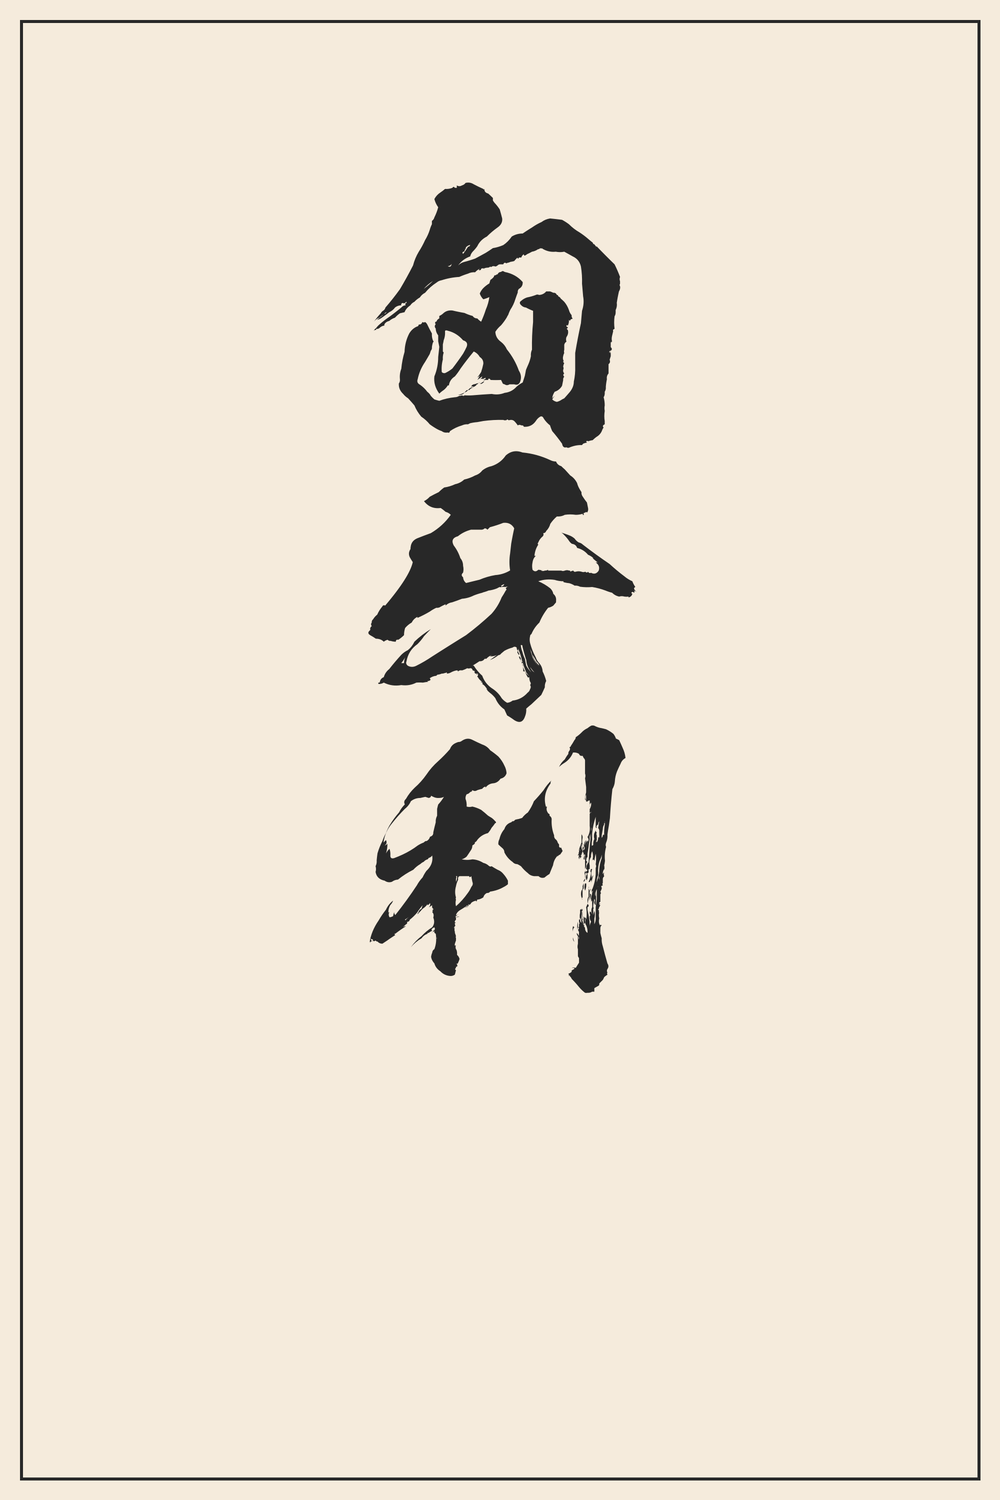 匈牙利